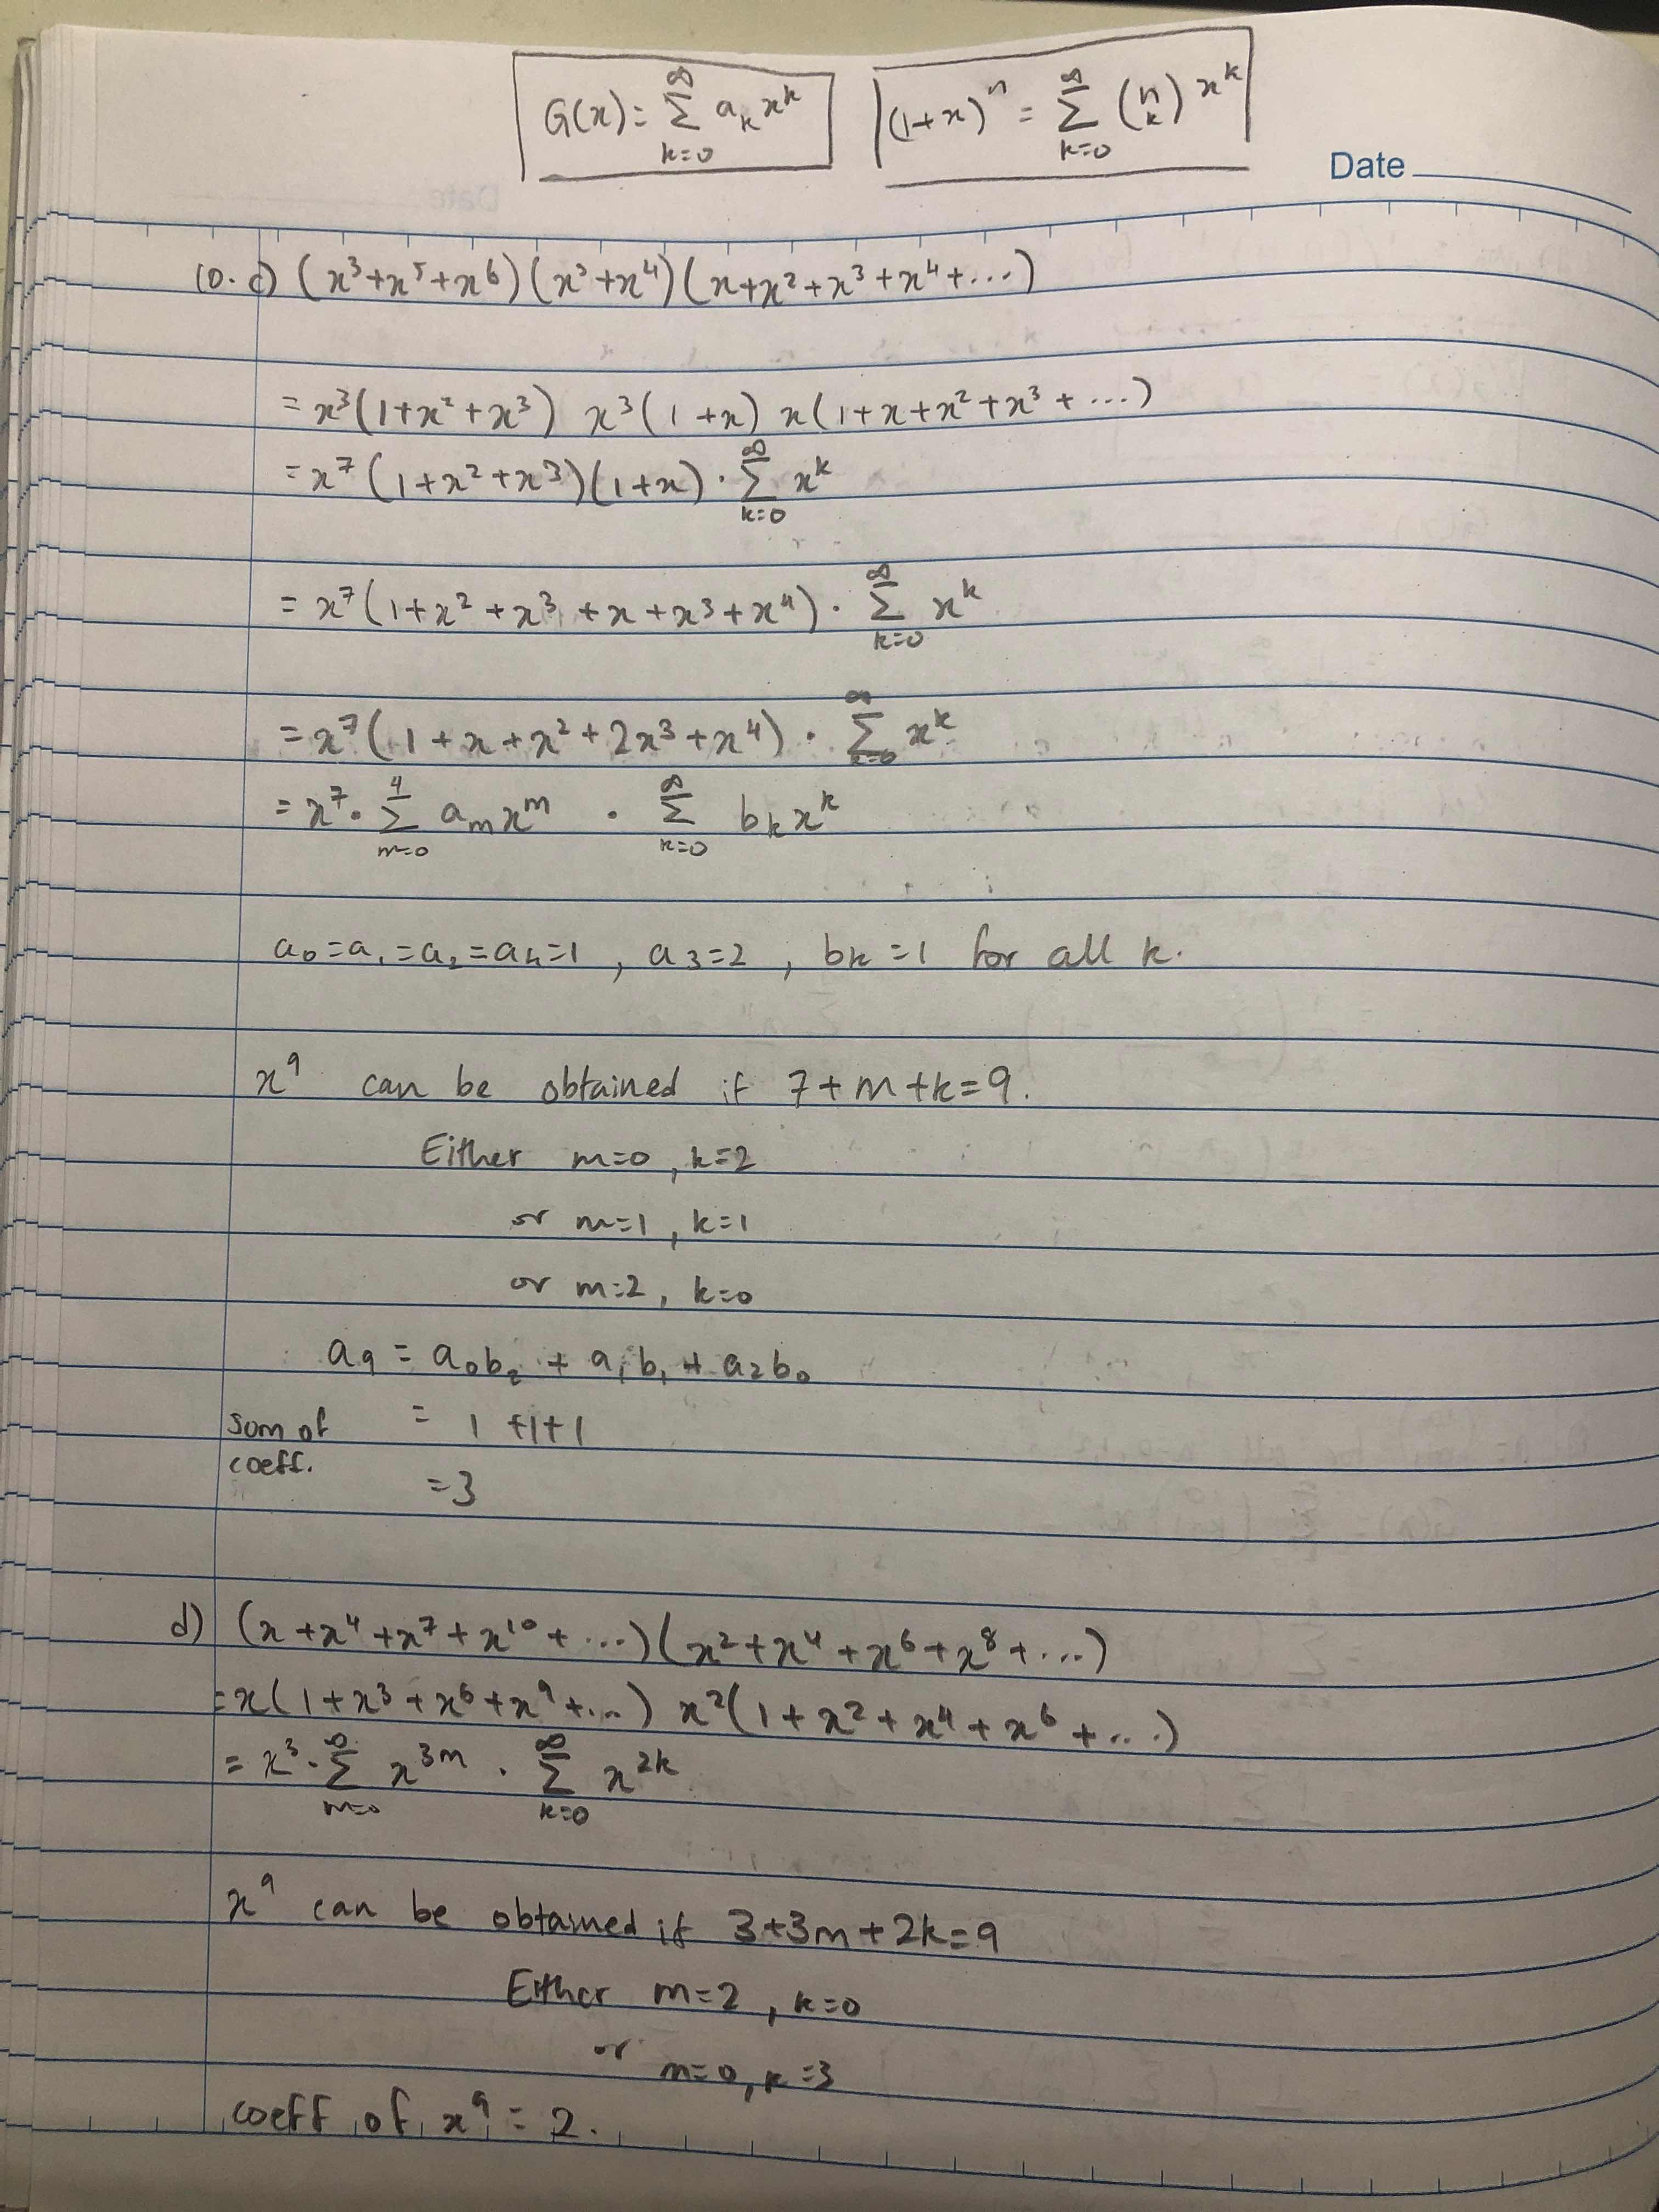 G(x) = ∑_{k=0}^{∞} a_k x^k
(1+x)^n = ∑_{k=0}^{∞} (n k) x^k
Date
10. c) (x^3+x^5+x^6)(x^3+x^4)(x+x^2+x^3+x^4+...)
= x^3(1+x^2+x^3) x^3(1+x) x(1+x+x^2+x^3+...)
= x^7(1+x^2+x^3)(1+x) · ∑_{k=0}^{∞} x^k
= x^7(1+x^2+x^3+x+x^3+x^4) · ∑_{k=0}^{∞} x^k
= x^7(1+x+x^2+2x^3+x^4) · ∑_{k=0}^{∞} x^k
= x^7 · ∑_{m=0}^{4} a_m x^m · ∑_{k=0}^{∞} b_k x^k
a_0=a_1=a_2=a_4=1, a_3=2, b_k=1 for all k.
x^9 can be obtained if 7+m+k=9.
Either m=0, k=2
or m=1, k=1
or m=2, k=0
a_9 = a_0b_2 + a_1b_1 + a_2b_0
sum of coeff. = 1+1+1
=3
d) (x+x^4+x^7+x^10+...)(x^2+x^4+x^6+x^8+...)
=x(1+x^3+x^6+x^9+...) x^2(1+x^2+x^4+x^6+...)
= x^3 · ∑_{m=0}^{∞} x^{3m} · ∑_{k=0}^{∞} x^{2k}
x^9 can be obtained if 3+3m+2k=9
Either m=2, k=0
or m=0, k=3
coeff of x^9 = 2.